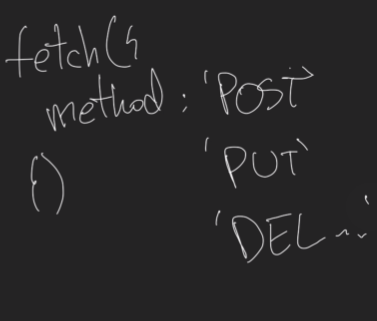 fetch({
method: 'POST'
'PUT'
})
'DEL...'